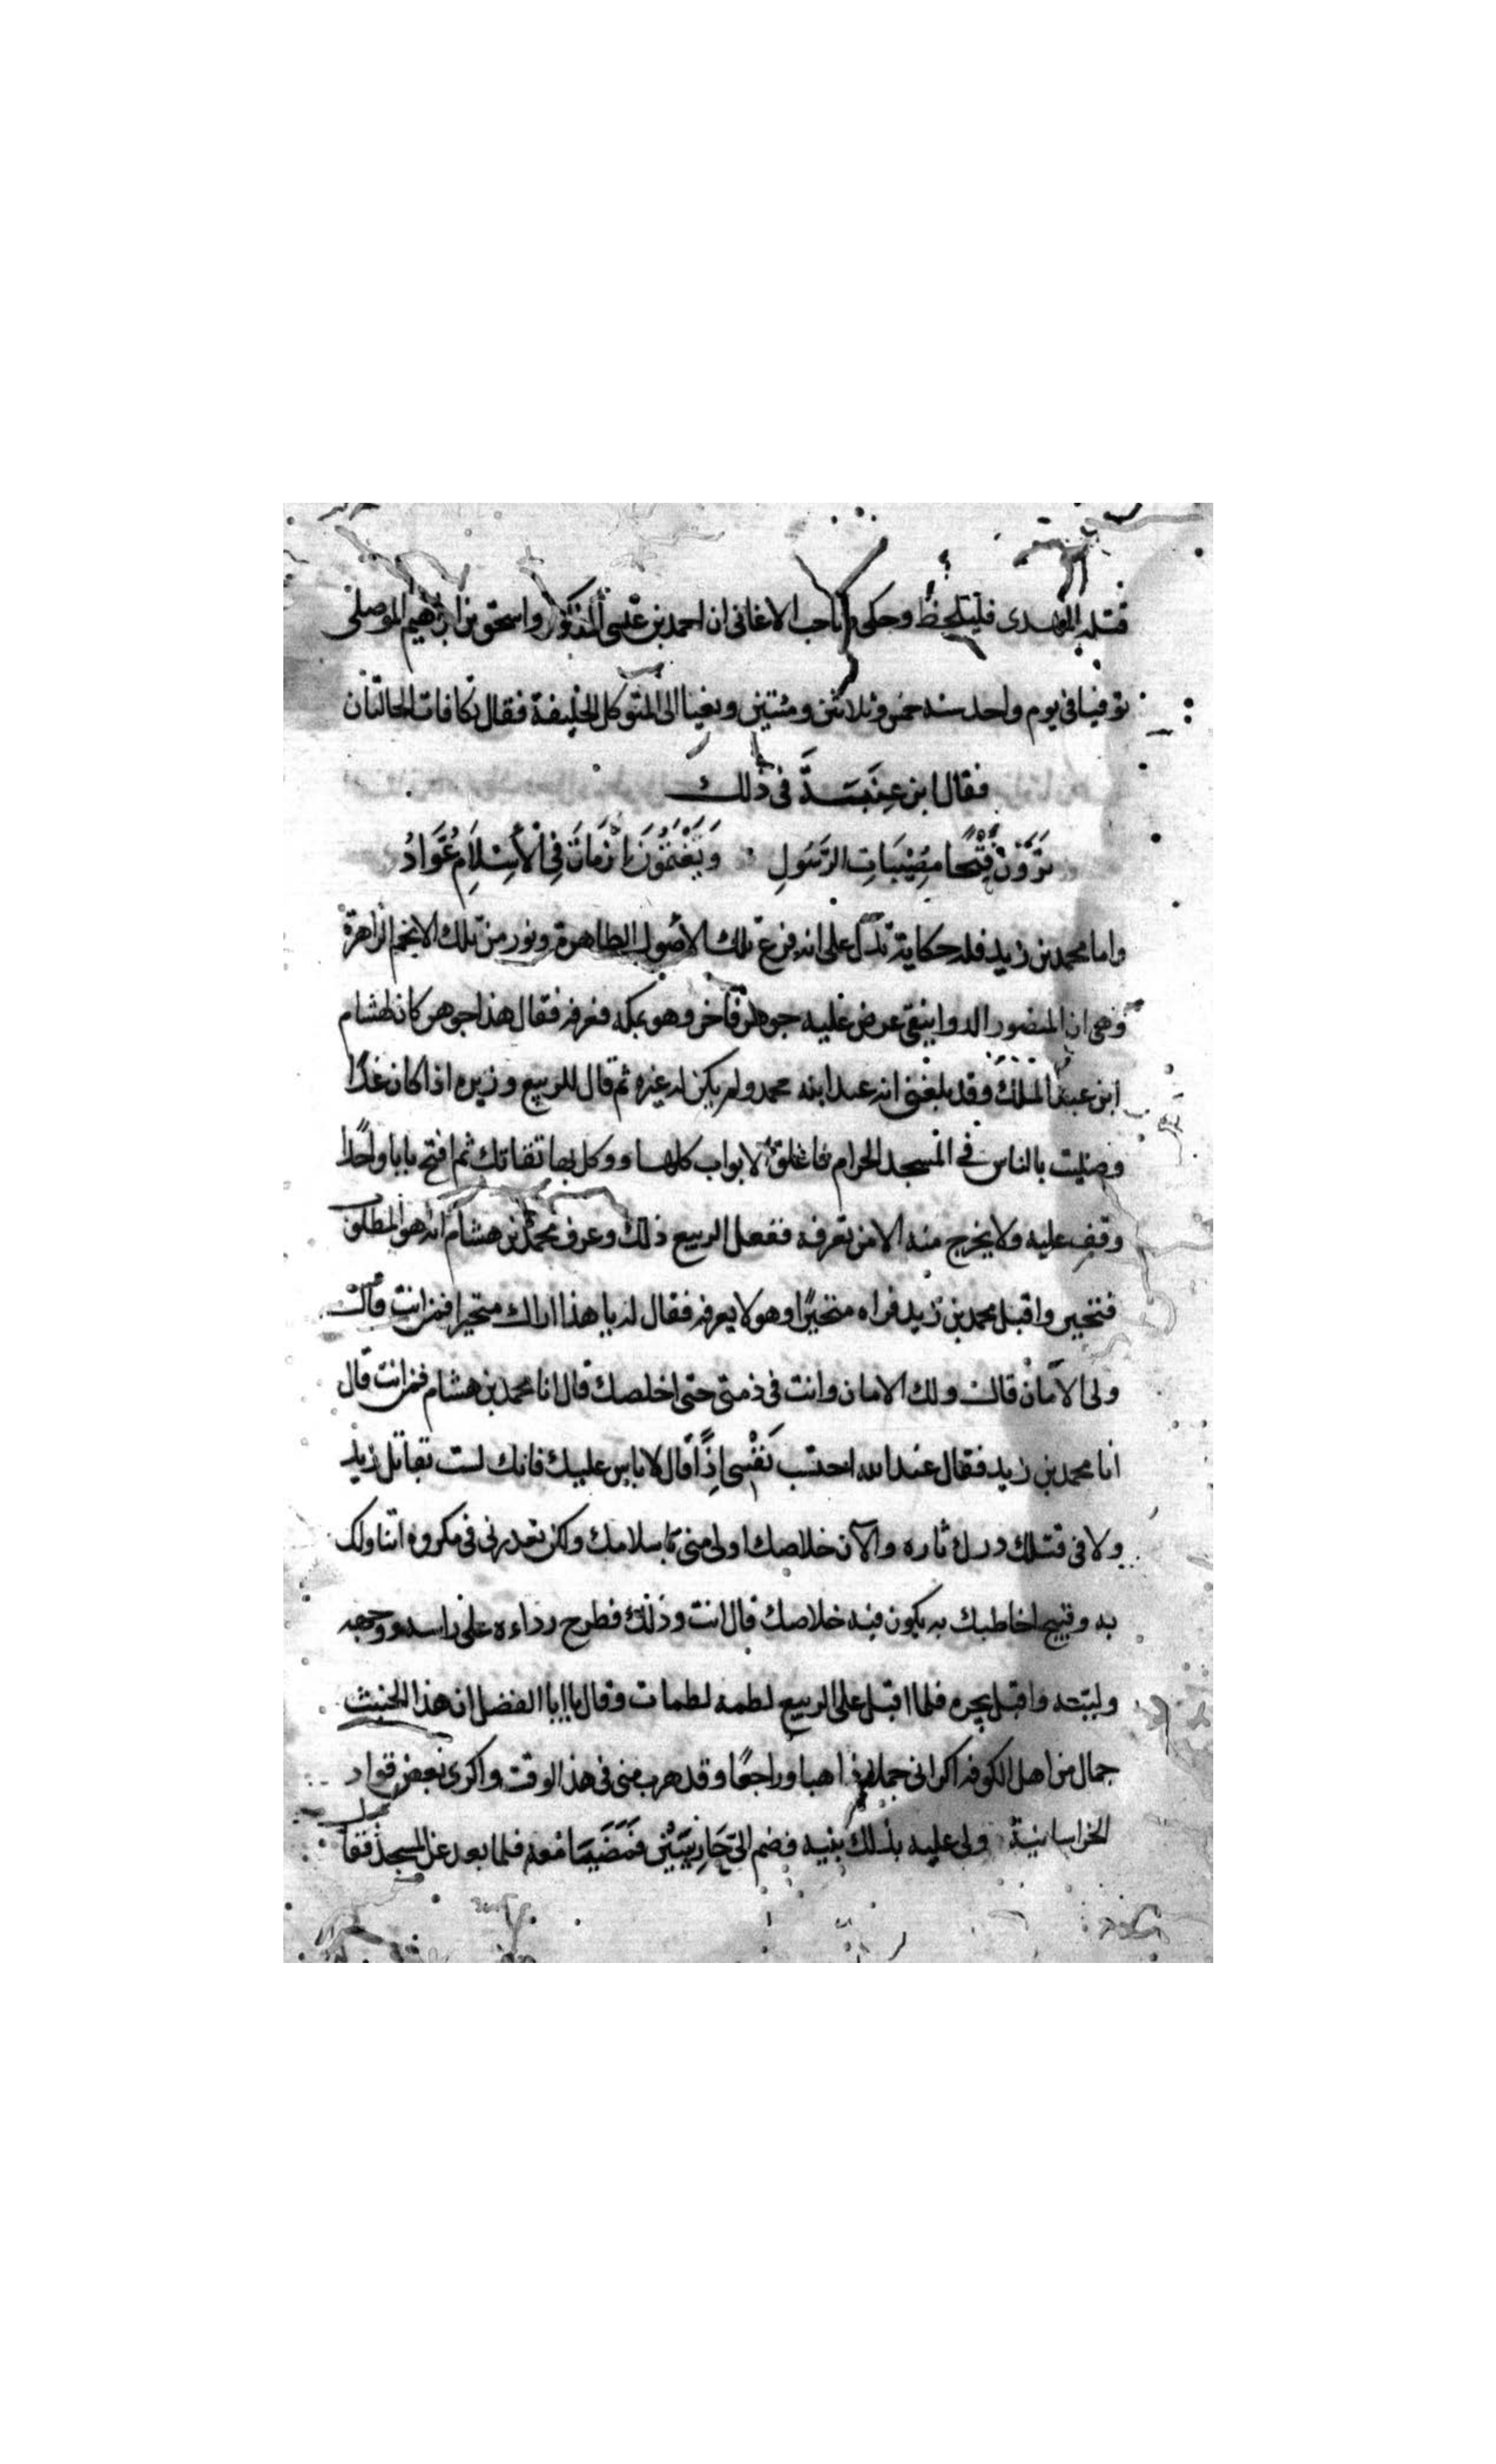 قتله المهدى فليلحظ وحكى صاحب الاغانى ان احمد بن عيسى المذكور واسحق بن ابرهيم الموصلى
توفيا فى يوم واحد سنه خمس وثلاثين ومئتين ونعيا الى المتوكل الخليفة فقال تكافات الحالتان
فقال ابن عنبسة فى ذلك
يرون فتحا مصيبات الرسول ويغتمون ان مات فى الاسلام عواد
واما محمد بن زيد فله حكاية تدل على انه فرع تلك الاصول الطاهرة ونور من تلك الانجم الزاهرة
وهى ان المنصور الدوانيقى عرض عليه جوهر فاخر وهو بمكه فعرفه فقال هذا جوهر كان لهشام
ابن عبد الملك وقد بلغنى انه عند ابنه محمد ولم يكن له غيره ثم قال للربيع وزيره اذا كان غدا
وصليت بالناس فى المسجد الحرام فاغلق الابواب كلها ووكل بها ثقاتك ثم افتح بابا واحدا
وقف عليه ولا يخرج منه الا من تعرفه ففعل الربيع ذلك وعرف محمد بن هشام انه هو المطلوب
فتحير واقبل محمد بن زيد فراه متحيرا وهو لا يعرفه فقال له يا هذا اراك متحيرا فمن انت قال
ولى الامان قال ولك الامان وانت فى ذمتى حتى اخلصك قال انا محمد بن هشام فمن انت قال
انا محمد بن زيد فقال عند الله احتسب نفسى اذا قال لا باس عليك فانك لست بقاتل زيد
ولا فى قتلك درك ثاره والآن خلاصك اولى منى باسلامك ولكن تعذرنى فى مكروه اتناولك
به وقبيح اخاطبك به يكون فيه خلاصك قال انت وذلك فطرح رداءه على راسه ووجهه
ولببه واقبل يجره فلما اقبل على الربيع لطمه لطمات وقال يا ابا الفضل ان هذا الخبيث
جمال من اهل الكوفه اكرانى جماله ذاهبا وراجعا وقد هرب منى فى هذا الوقت واكرى بعض قواد
الخراسانية ولى عليه بذلك بينه فضم الى حارسين فمضيا معه فلما بعد عن المسجد فقال